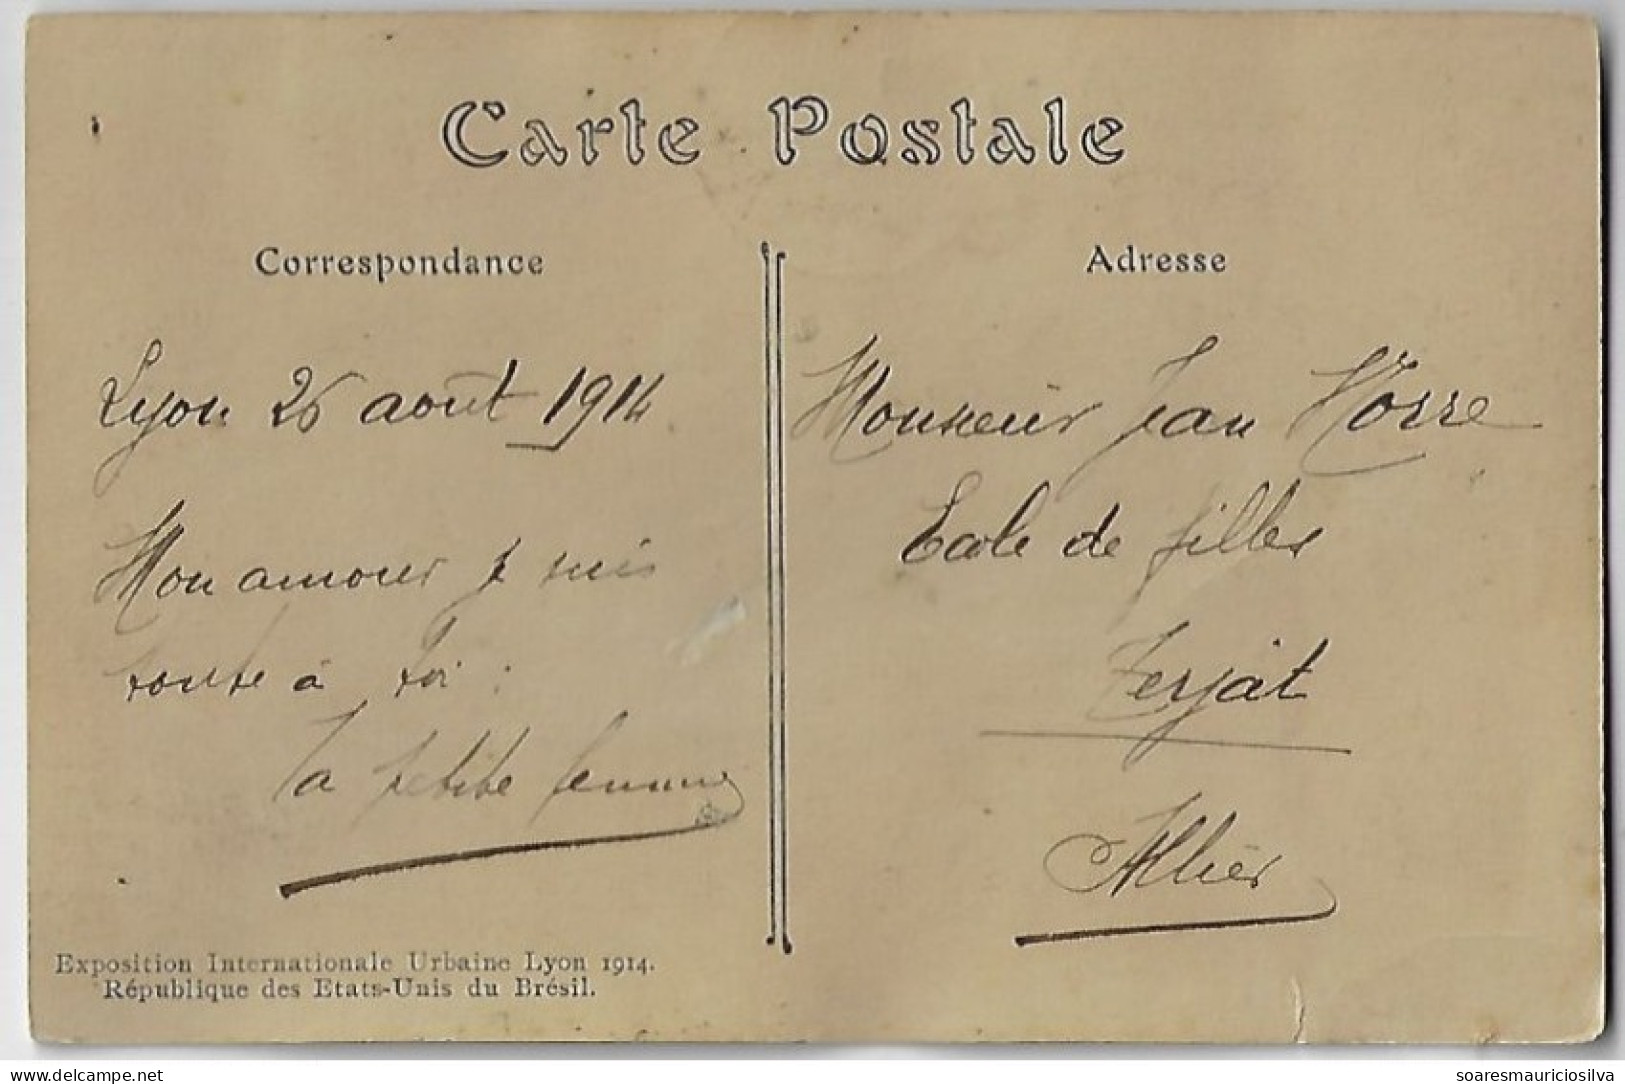 Carte Postale
Correspondance
Lyon 26 août 1914
Mon amour je suis
toute à toi.
Ta petite femme
Exposition Internationale Urbaine Lyon 1914.
République des Etats-Unis du Brésil.
Adresse
Monsieur Jean
Ecole de filles
Terjat
Allier
soaresmauriciosilva